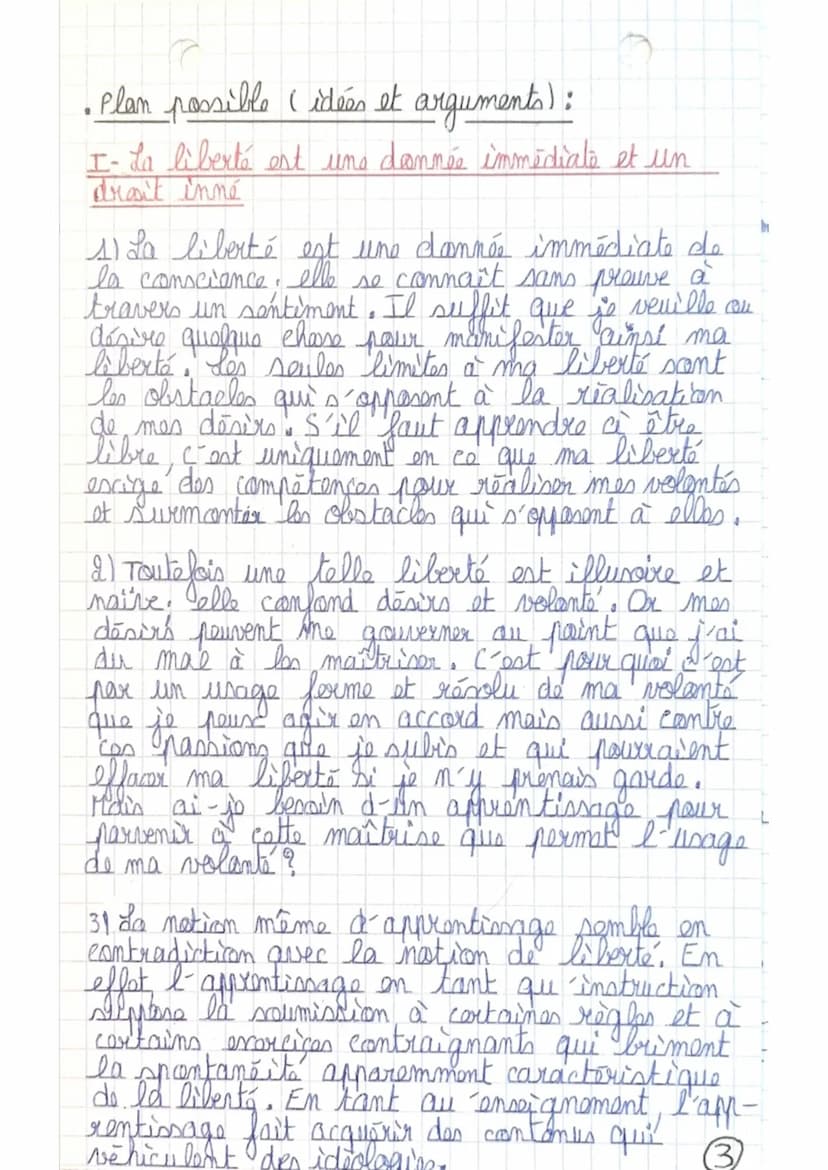 . Plan possible ( idées et arguments ) :
I- La liberté est une donnée immédiate et un
droit inné
1) La liberté est une donnée immédiate de
la conscience, elle se connaît sans preuve à
travers un sentiment. Il suffit que je veuille ou
désire quelque chose pour manifester ainsi ma
liberté. Les seules limites à ma liberté sont
les obstacles qui s'opposent à la réalisation
de mes désirs. S'il faut apprendre à être
libre, c'est uniquement en ce que ma liberté
exige des compétences pour réaliser mes volontés
et surmonter les obstacles qui s'opposent à elles.
2) Toutefois une telle liberté est illusoire et
naïve, elle confond désirs et volonté. Or mes
désirs peuvent me gouverner au point que j'ai
du mal à les maîtriser. C'est pourquoi c'est
par un usage ferme et résolu de ma volonté
que je peux agir en accord mais aussi contre
ces passions que je subis et qui pourraient
effacer ma liberté si je n'y prenais garde.
Mais ai-je besoin d'un apprentissage pour
parvenir à cette maîtrise que permet l'usage
de ma volonté ?
3) La notion même d'apprentissage semble en
contradiction avec la notion de liberté. En
effet l'apprentissage en tant qu'instruction
suppose la soumission à certaines règles et à
certains exercices contraignants qui briment
la spontanéité apparemment caractéristique
de la liberté. En tant qu'enseignement, l'app-
rentissage fait acquérir des contenus qui
véhiculent des idéologies.
3